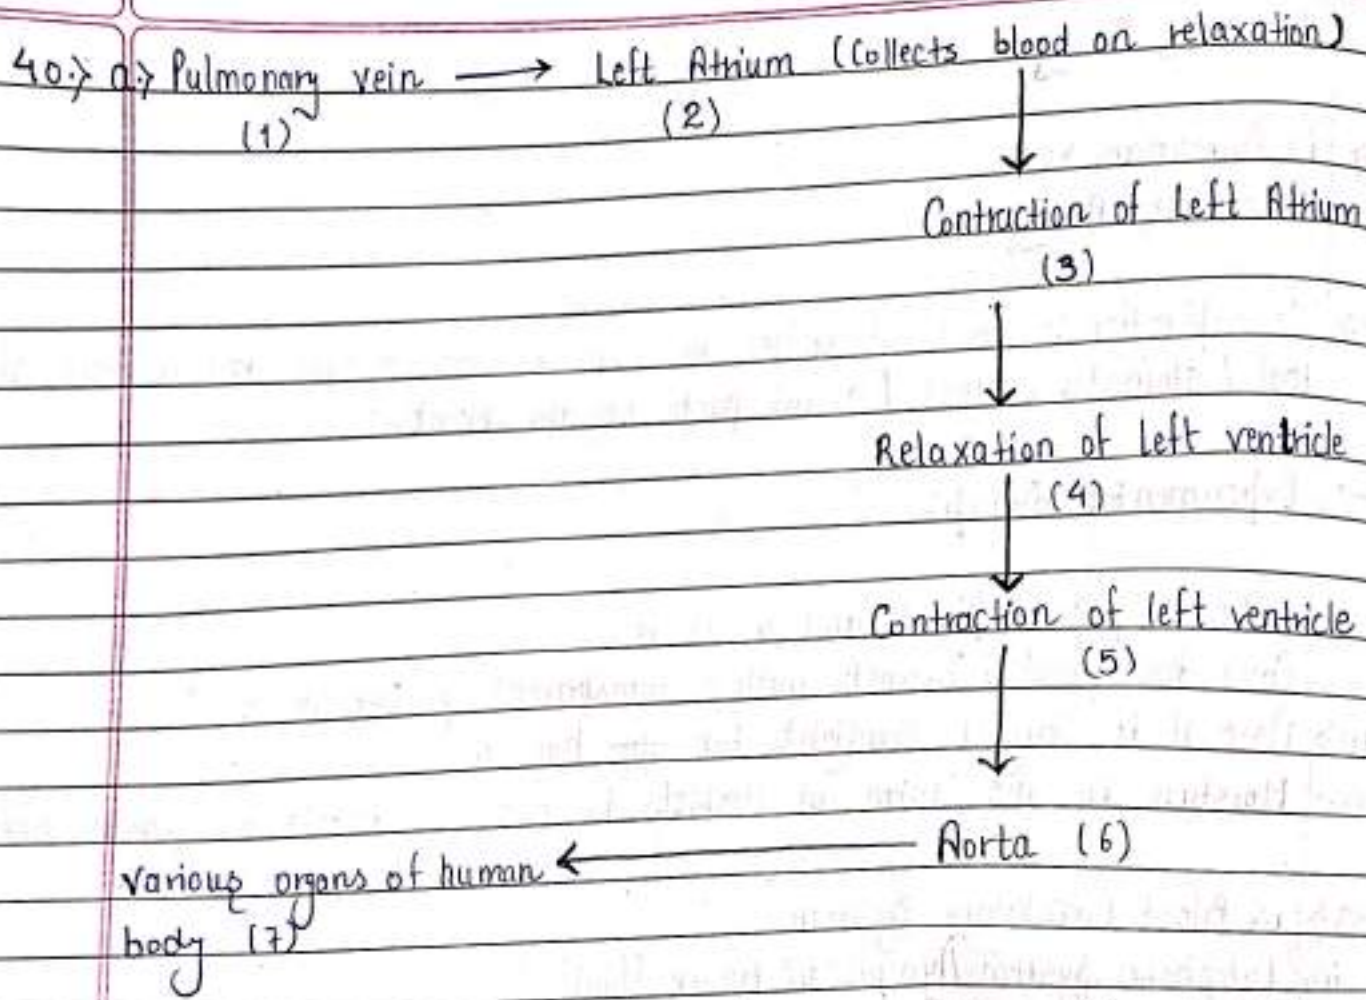 40.> a.> Pulmonary vein → Left Atrium (Collects blood on relaxation)
(1) (2)
↓
Contraction of Left Atrium
(3)
↓
Relaxation of left ventricle
↓ (4)
Contraction of left ventricle
↓ (5)
Aorta (6)
various organs of human ←
body (7)